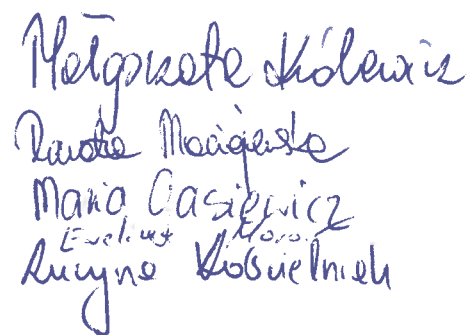 Małgorzata Królewicz
Dorota Maciejewska
Maria Gasiewicz
Ewelina
Lucyna Kościelniak